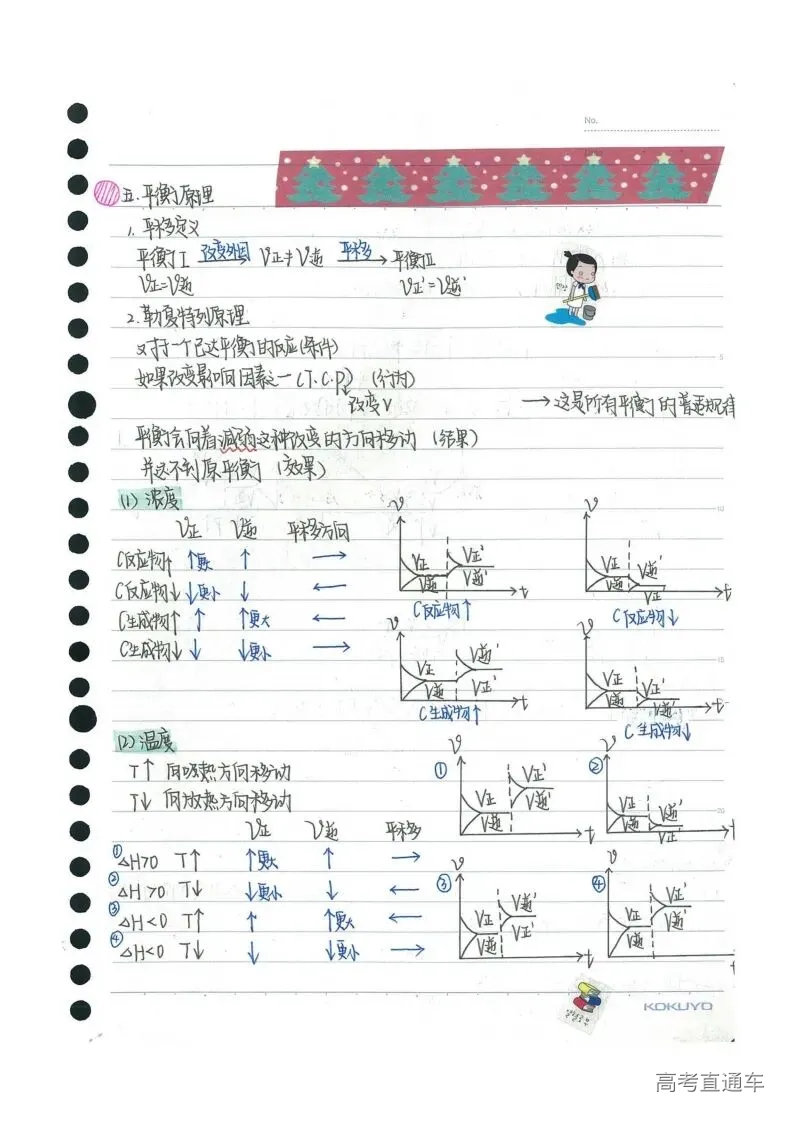 No.
五.平衡原理
1. 平移定义
平衡I 改变外因 V正≠V逆 平移 平衡II
V正=V逆 V正'=V逆'
2.勒夏特列原理
对于一个已达平衡的反应(条件)
如果改变影响因素之一(T.C.P) (行为)
改变V
→这是所有平衡的普适规律
平衡会向着减弱这种改变的方向移动 (结果)
并达不到原平衡 (效果)
(1) 浓度
V正 V逆 平移方向
C反应物↑ ↑更大 ↑ →
C反应物↓ ↓更小 ↓ ←
C生成物↑ ↑ ↑更大 ←
C生成物↓ ↓ ↓更小 →
V V正 V逆 V正' V逆' t
C反应物↑
V V正 V逆 V逆' V正 t
C反应物↓
V V正 V逆 V逆' V正' t
C生成物↑
V V正 V逆 V正' V逆' t
C生成物↓
(2) 温度
T↑ 向吸热方向移动
T↓ 向放热方向移动
V正 V逆 平移
① △H>0 T↑ ↑更大 ↑ →
② △H>0 T↓ ↓更小 ↓ ←
③ △H<0 T↑ ↑ ↑更大 ←
④ △H<0 T↓ ↓ ↓更小 →
① V V正 V逆 V正' V逆' t
② V V正 V逆 V逆' V正' t
③ V V正 V逆 V逆' V正' t
④ V V正 V逆 V正' V逆'
5
10
15
20
KOKUYO
高考直通车